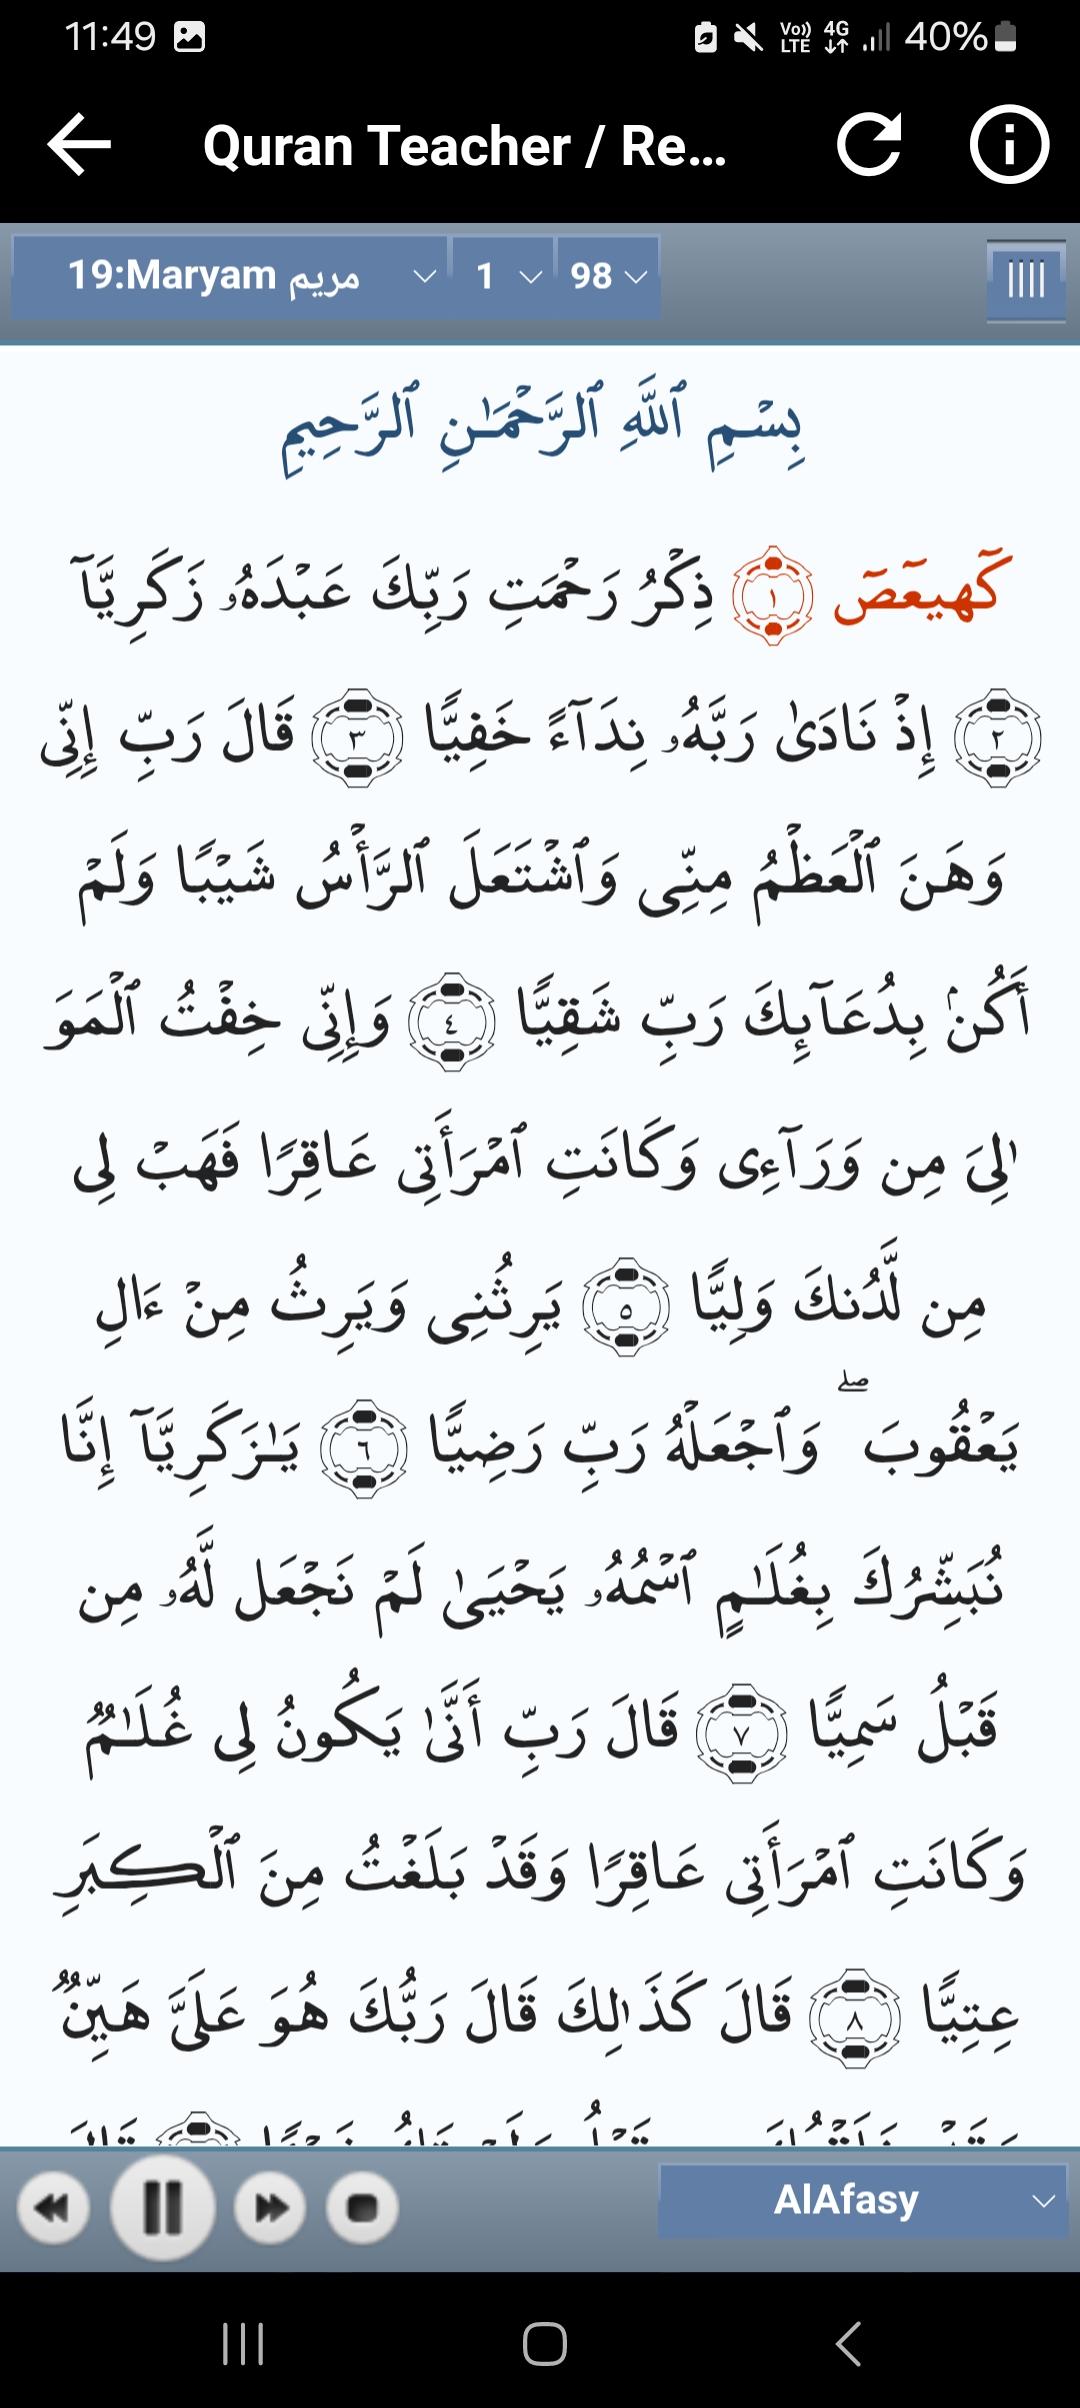 11:49
Vo)) LTE 4G 40%
Quran Teacher / Re...
19:Maryam مريم 1 98
بِسْمِ ٱللَّهِ ٱلرَّحْمَـٰنِ ٱلرَّحِيمِ
كٓهيعٓصٓ ١ ذِكْرُ رَحْمَتِ رَبِّكَ عَبْدَهُۥ زَكَرِيَّآ
٢ إِذْ نَادَىٰ رَبَّهُۥ نِدَآءً خَفِيًّا ٣ قَالَ رَبِّ إِنِّى
وَهَنَ ٱلْعَظْمُ مِنِّى وَٱشْتَعَلَ ٱلرَّأْسُ شَيْبًا وَلَمْ
أَكُنۢ بِدُعَآئِكَ رَبِّ شَقِيًّا ٤ وَإِنِّى خِفْتُ ٱلْمَوَ
ٰلِىَ مِن وَرَآءِى وَكَانَتِ ٱمْرَأَتِى عَاقِرًا فَهَبْ لِى
مِن لَّدُنكَ وَلِيًّا ٥ يَرِثُنِى وَيَرِثُ مِنْ ءَالِ
يَعْقُوبَ ۖ وَٱجْعَلْهُ رَبِّ رَضِيًّا ٦ يَـٰزَكَرِيَّآ إِنَّا
نُبَشِّرُكَ بِغُلَـٰمٍ ٱسْمُهُۥ يَحْيَىٰ لَمْ نَجْعَل لَّهُۥ مِن
قَبْلُ سَمِيًّا ٧ قَالَ رَبِّ أَنَّىٰ يَكُونُ لِى غُلَـٰمٌ
وَكَانَتِ ٱمْرَأَتِى عَاقِرًا وَقَدْ بَلَغْتُ مِنَ ٱلْكِبَرِ
عِتِيًّا ٨ قَالَ كَذَٰلِكَ قَالَ رَبُّكَ هُوَ عَلَىَّ هَيِّنٌ
AlAfasy